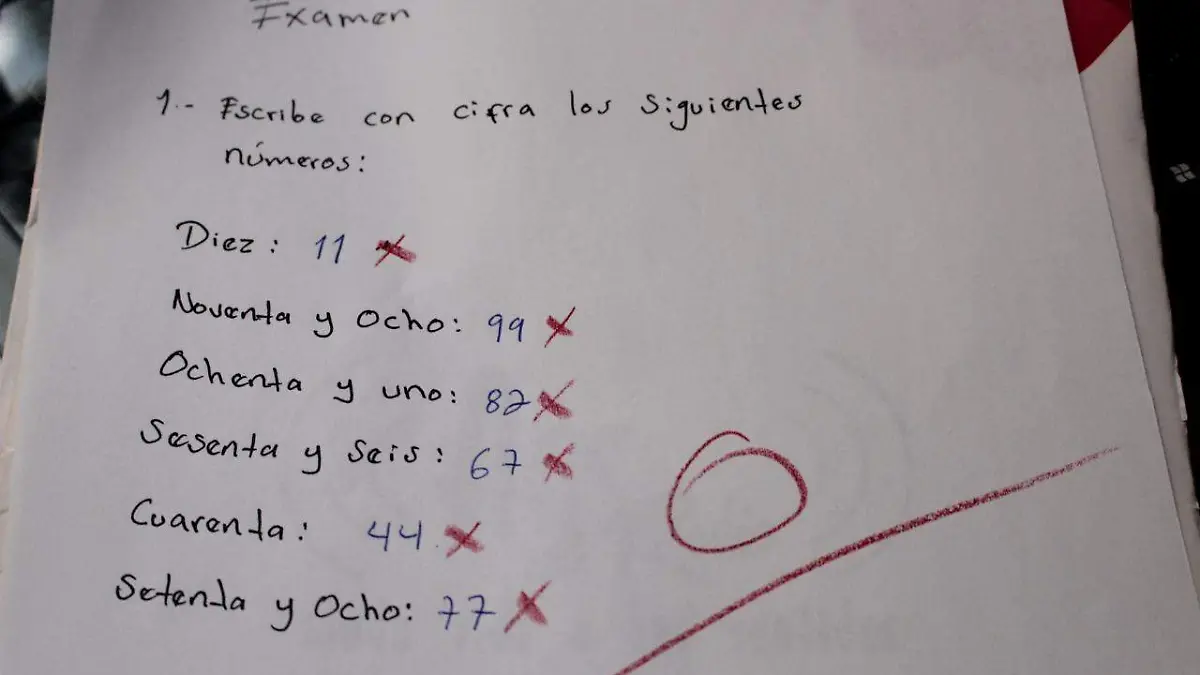 Examen
1.- Escribe con cifra los siguientes
números:
Diez: 11
Noventa y Ocho: 99
Ochenta y uno: 82
Sesenta y Seis: 67
Cuarenta: 44
Setenta y Ocho: 77
0